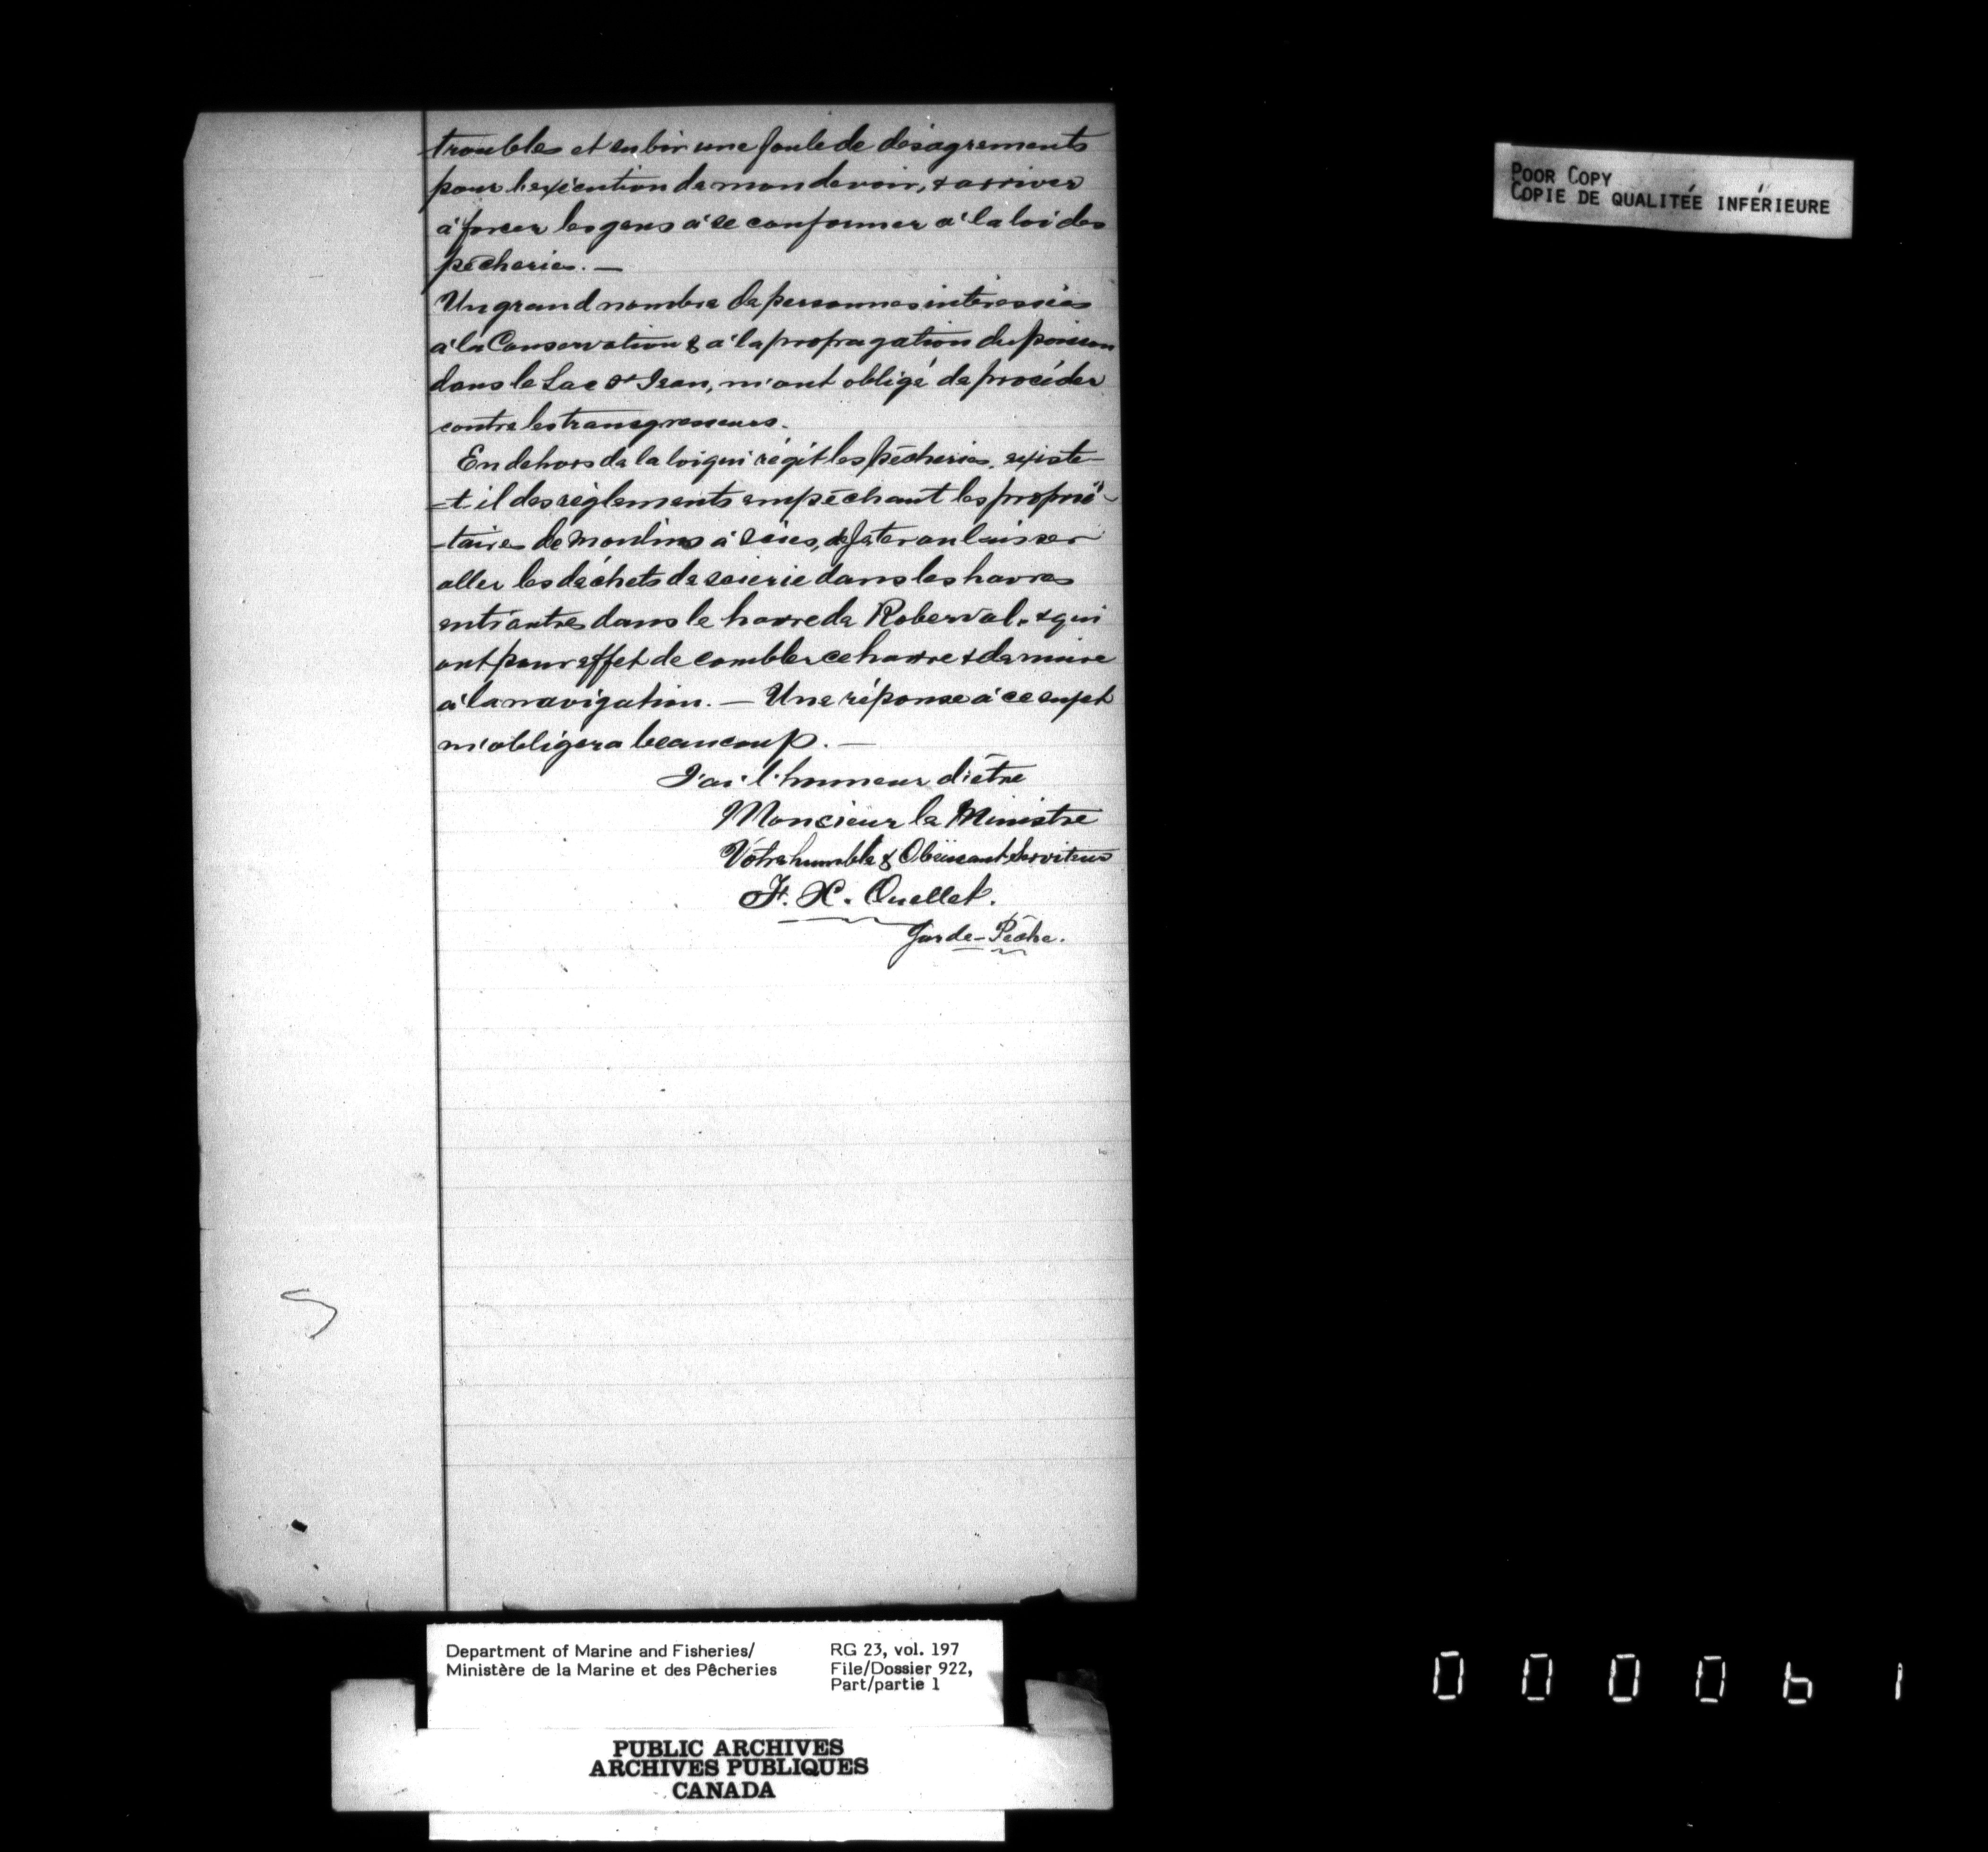 troubles et subir une foule de désagrements
pour l'exécution de mon devoir, & arriver
à forcer les gens à se conformer à la loi des
pêcheries. —
Un grand nombre de personnes intéressées
à la Conservation & à la propagation du poisson
dans le Lac St Jean, m'ont obligé de procéder
contre les transgresseurs.
En dehors de la loi qui régit les pêcheries, existe-
-t-il des règlements empêchant les proprié-
-taires de moulins à scies, de jeter ou laisser
aller les déchets de scierie dans les havres
entr'autres dans le havre de Roberval, & qui
ont pour effet de combler ce havre & de nuire
à la navigation. — Une réponse à ce sujet
m'obligera beaucoup. —
J'ai l'honneur d'être
Monsieur le Ministre
Votre humble & Obéissant Serviteur
F. X. Ouellet.
Garde-Pêche.
5
POOR COPY
COPIE DE QUALITÉE INFÉRIEURE
Department of Marine and Fisheries/
Ministère de la Marine et des Pêcheries
RG 23, vol. 197
File/Dossier 922,
Part/partie 1
PUBLIC ARCHIVES
ARCHIVES PUBLIQUES
CANADA
000061